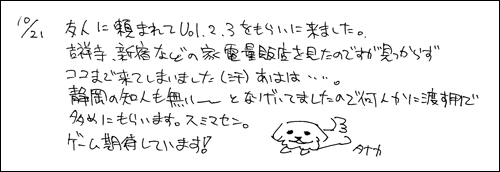 10/21 友人に頼まれてVol.2.3をもらいに来ました。
吉祥寺、新宿などの家電量販店を見たのですが見つからず
ココまで来てしまいました(汗)あはは…。
静岡の知人も無いーとなげいてましたので何人かに渡す用で
多めにもらいます。スミマセン。
ゲーム期待しています!
タナカ